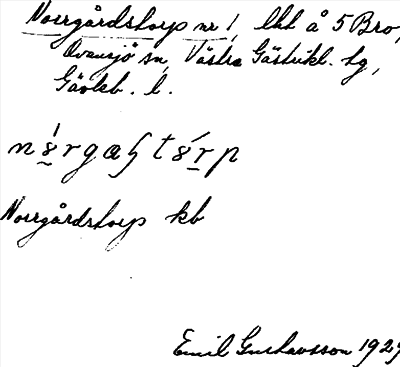 Norrgårdstorp nr 1, lht å 5 Bro,
Ovansjö sn, Västra Gästrikl. tg,
Gävleb. l.
Norrgårdstorp kb
Emil Gustavsson 1927